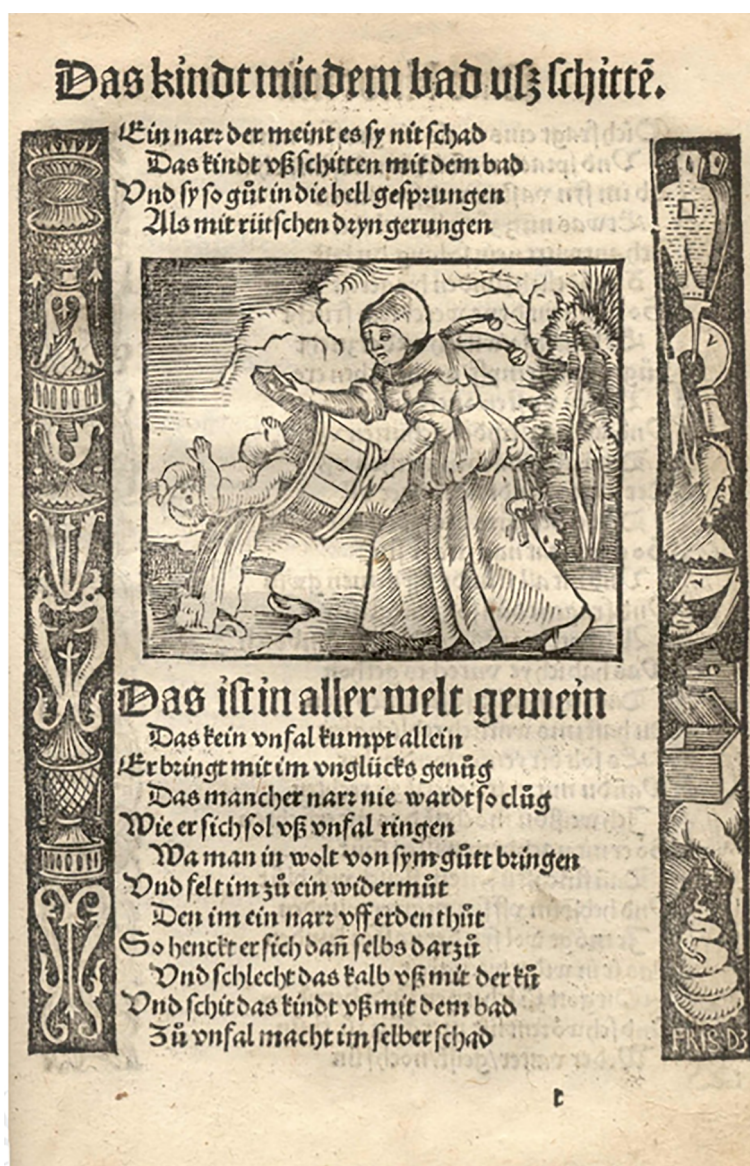 Das kindt mit dem bad uſz ſchittē.
Ein narr der meint es ſy nit ſchad
Das kindt vß ſchitten mit dem bad
Vnd ſy ſo gůt in die hell geſprungen
Als mit rütſchen dryn gerungen
Das iſt in aller welt gemein
Das kein vnfal kumpt allein
Er bringt mit im vnglücks genůg
Das mancher narr nie wardt ſo clůg
Wie er ſich ſol vß vnfal ringen
Wa man in wolt von ſym gůtt bringen
Vnd felt im zů ein widermůt
Den im ein narr vff erden thůt
So henckt er ſich dañ ſelbs darzů
Vnd ſchlecht das kalb vß mit der ků
Vnd ſchit das kindt vß mit dem bad
Zů vnfal macht im ſelber ſchad
t